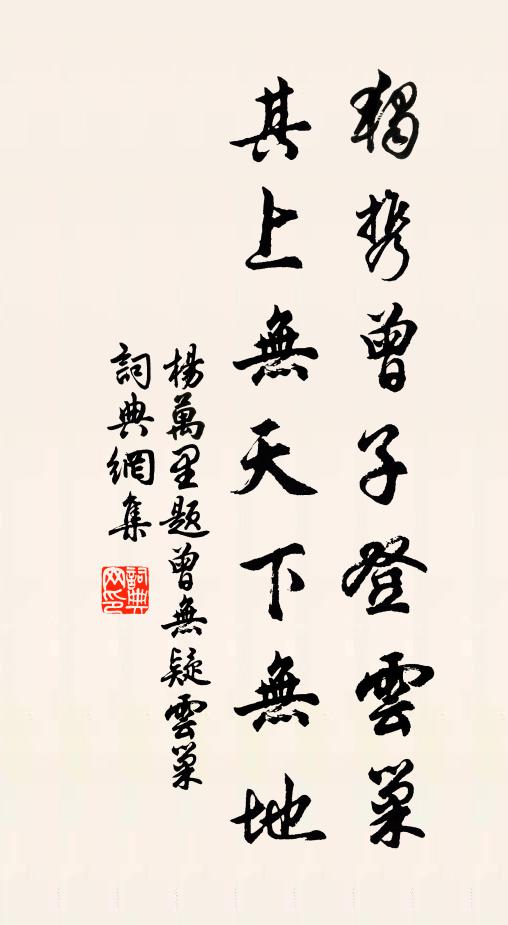 獨攜曾子登雲巢
其上無天下無地
楊萬里題曾無疑雲巢
詞典網集
詞典網印